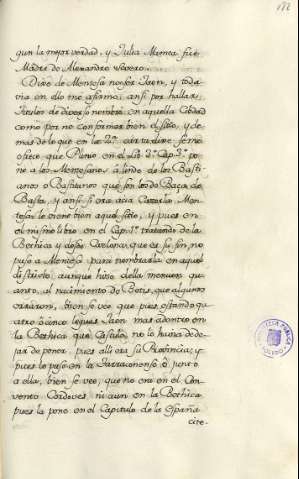 182
gun la mejor verdad, y Julia Mamea fue
Madre de Alexandro severo.
Dixe de Mentesa no ser Jaen, y toda
via en ello me afirmo; ansi por hallar
titulos de diverso nombre en aquella Ciudad
como por no conformar bien el sitio, y de
mas de lo que en las
ofrece que Plinio en el Lib. 3. Cap. 3. po
ne a los Mentesanos a lindo de los Basti
tanos o Basitanos que son los de Baça, de
Basta, y ansi si era acia Cazorla Men
tesa le viene bien aquel sitio, y pues en
el mismo libro en el Cap. 1. tratando de la
Bethica y de sus no
puso a Mentesa para nombrarla en aquel
distrito aunque hizo della mencion en
quanto al nacimiento de Betis, que algunos
erraron, bien se ve que pues estando qua
tro o cinco leguas Jaen mas adentro en
la Bethica que Castulo, no la huvia de de
jar de poner, pues alli era su Provincia; y
pues le puso en la Tarraconense o junto
a ella, bien se vee, que no era en el Con
vento Cordoves ni aun en la Bethica
pues la pone en el Capitulo de la España
cite-